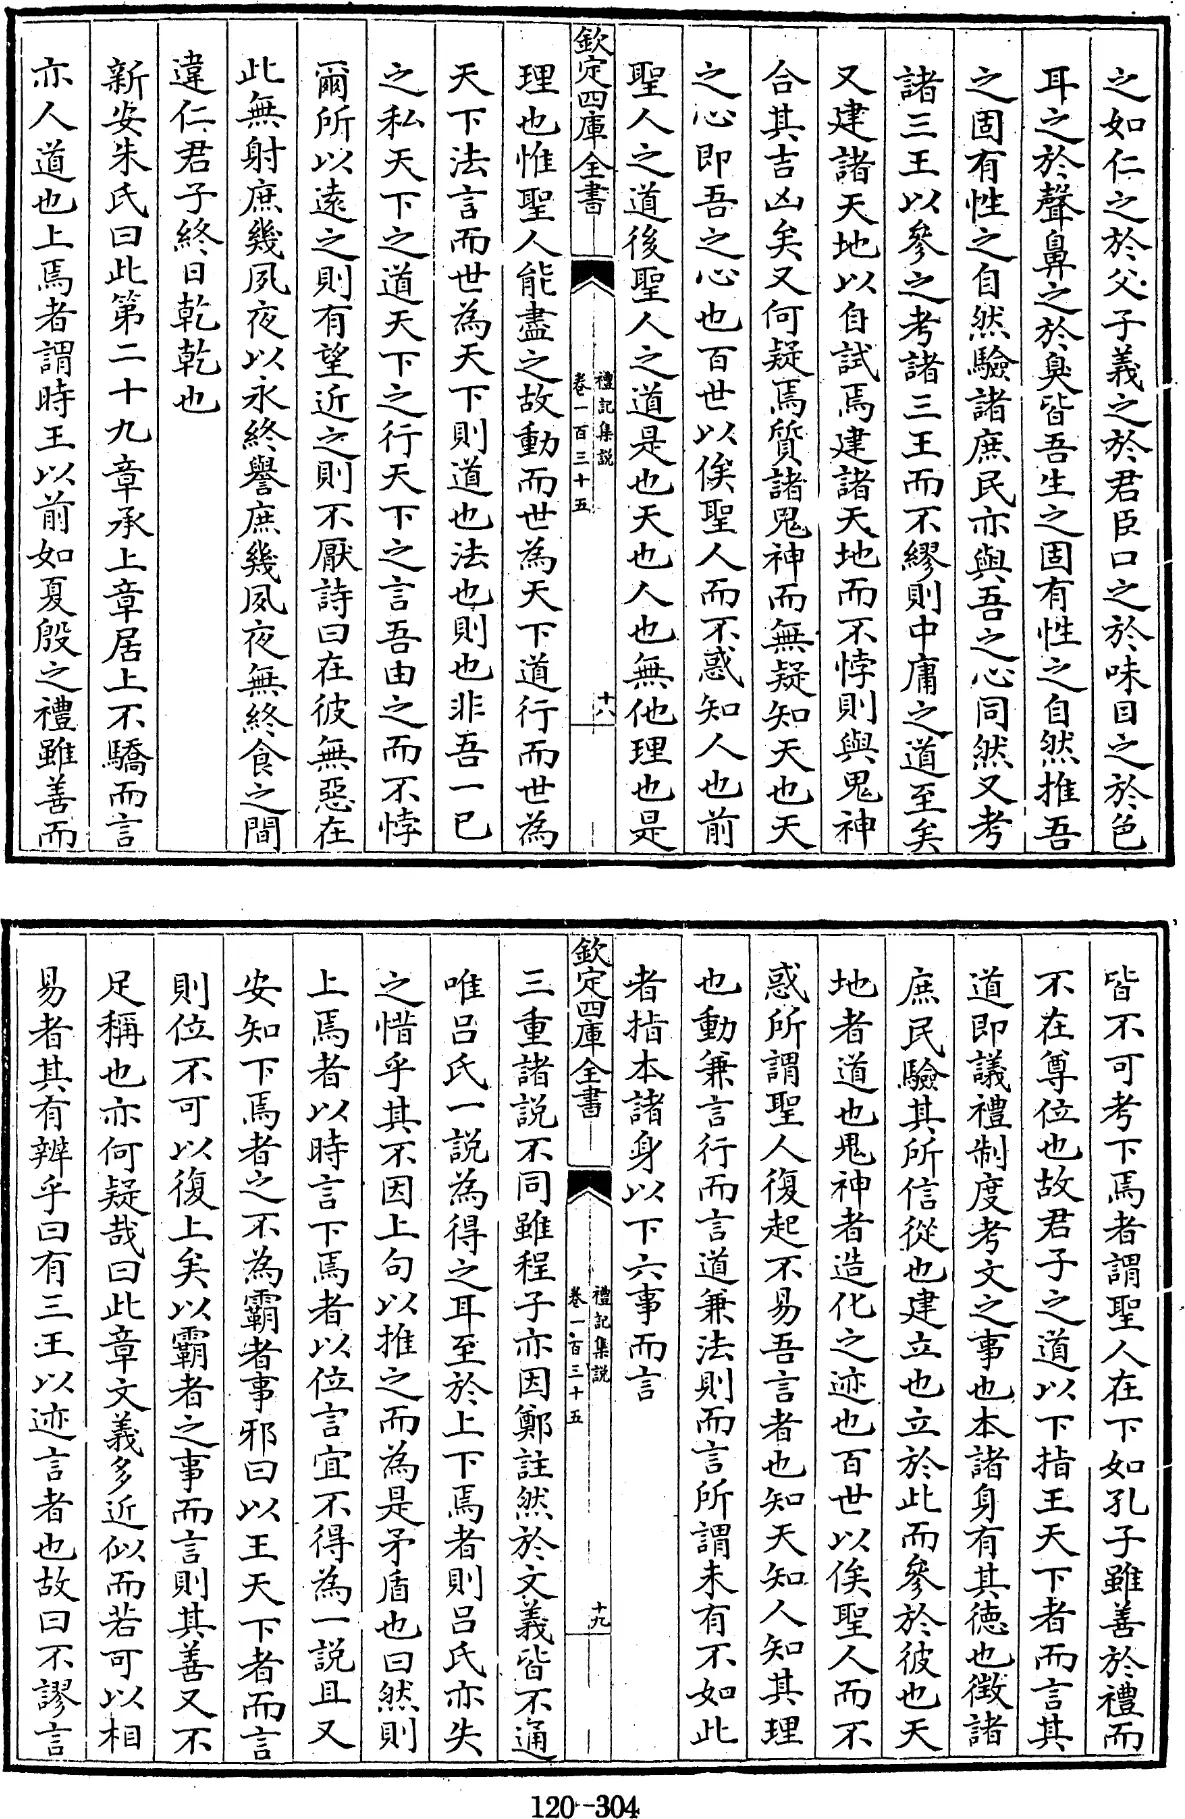 之如仁之於父子義之於君臣口之於味目之於色
耳之於聲鼻之於臭皆吾生之固有性之自然推吾
之固有性之自然驗諸庶民亦與吾之心同然又考
諸三王以參之考諸三王而不繆則中庸之道至矣
又建諸天地以自試焉建諸天地而不悖則與鬼神
合其吉凶矣又何疑焉質諸鬼神而無疑知天也天
之心即吾之心也百世以俟聖人而不惑知人也前
聖人之道後聖人之道是也天也人也無他理也是
欽定四庫全書
禮記集說
卷一百三十五
十八
理也惟聖人能盡之故動而世為天下道行而世為
天下法言而世為天下則道也法也則也非吾一已
之私天下之道天下之行天下之言吾由之而不悖
爾所以遠之則有望近之則不厭詩曰在彼無惡在
此無射庶幾夙夜以永終譽庶幾夙夜無終食之間
違仁君子終日乾乾也
新安朱氏曰此第二十九章承上章居上不驕而言
亦人道也上焉者謂時王以前如夏殷之禮雖善而
皆不可考下焉者謂聖人在下如孔子雖善於禮而
不在尊位也故君子之道以下指王天下者而言其
道即議禮制度考文之事也本諸身有其德也徵諸
庶民驗其所信從也建立也立於此而參於彼也天
地者道也鬼神者造化之迹也百世以俟聖人而不
惑所謂聖人復起不易吾言者也知天知人知其理
也動兼言行而言道兼法則而言所謂未有不如此
者指本諸身以下六事而言
欽定四庫全書
禮記集說
卷一百三十五
十九
三重諸說不同雖程子亦因鄭註然於文義皆不通
唯呂氏一說為得之耳至於上下焉者則呂氏亦失
之惜乎其不因上句以推之而為是矛盾也曰然則
上焉者以時言下焉者以位言宜不得為一說且又
安知下焉者之不為霸者事邪曰以王天下者而言
則位不可以復上矣以霸者之事而言則其善又不
足稱也亦何疑哉曰此章文義多近似而若可以相
易者其有辨乎曰有三王以迹言者也故曰不謬言
120-304